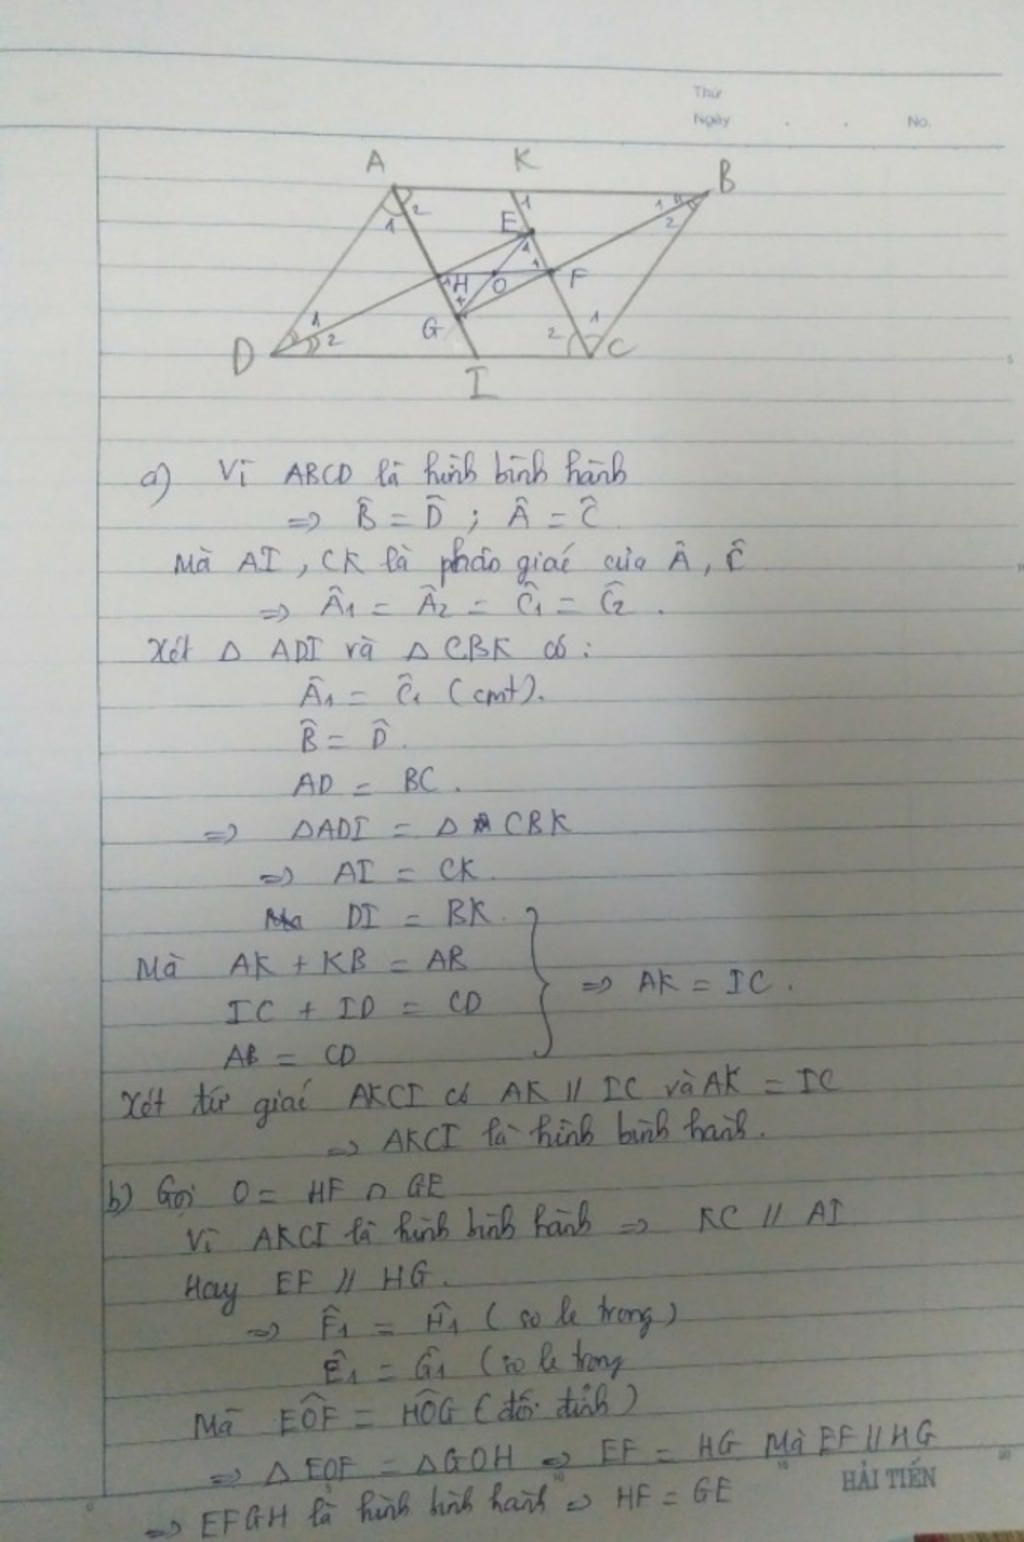 Thứ
Ngày . . No.
A K B
1 2 1 1 2
E 1 1
H 1 O F
G 1
D 1 2 2 1 C
I
a) Vì ABCD là hình bình hành
=> B̂ = D̂ ; Â = Ĉ
Mà AI, CK là phân giác của Â, Ĉ
=> Â1 = Â2 = Ĉ1 = Ĉ2.
Xét Δ ADI và Δ CBK có:
Â1 = Ĉ1 (cmt).
B̂ = D̂.
AD = BC.
=> ΔADI = Δ CBK
=> AI = CK.
DI = BK.
Mà AK + KB = AB
IC + ID = CD => AK = IC.
AB = CD
Xét tứ giác AKCI có AK // IC và AK = IC
=> AKCI là hình bình hành.
b) Gọi O = HF ∩ GE
Vì AKCI là hình bình hành => KC // AI
Hay EF // HG.
=> F̂1 = Ĥ1 (so le trong)
Ê1 = Ĝ1 (so le trong
Mà EÔF = HÔG (đối đỉnh)
=> Δ EOF = ΔGOH => EF = HG Mà EF // HG
HẢI TIẾN
=> EFGH là hình bình hành => HF = GE